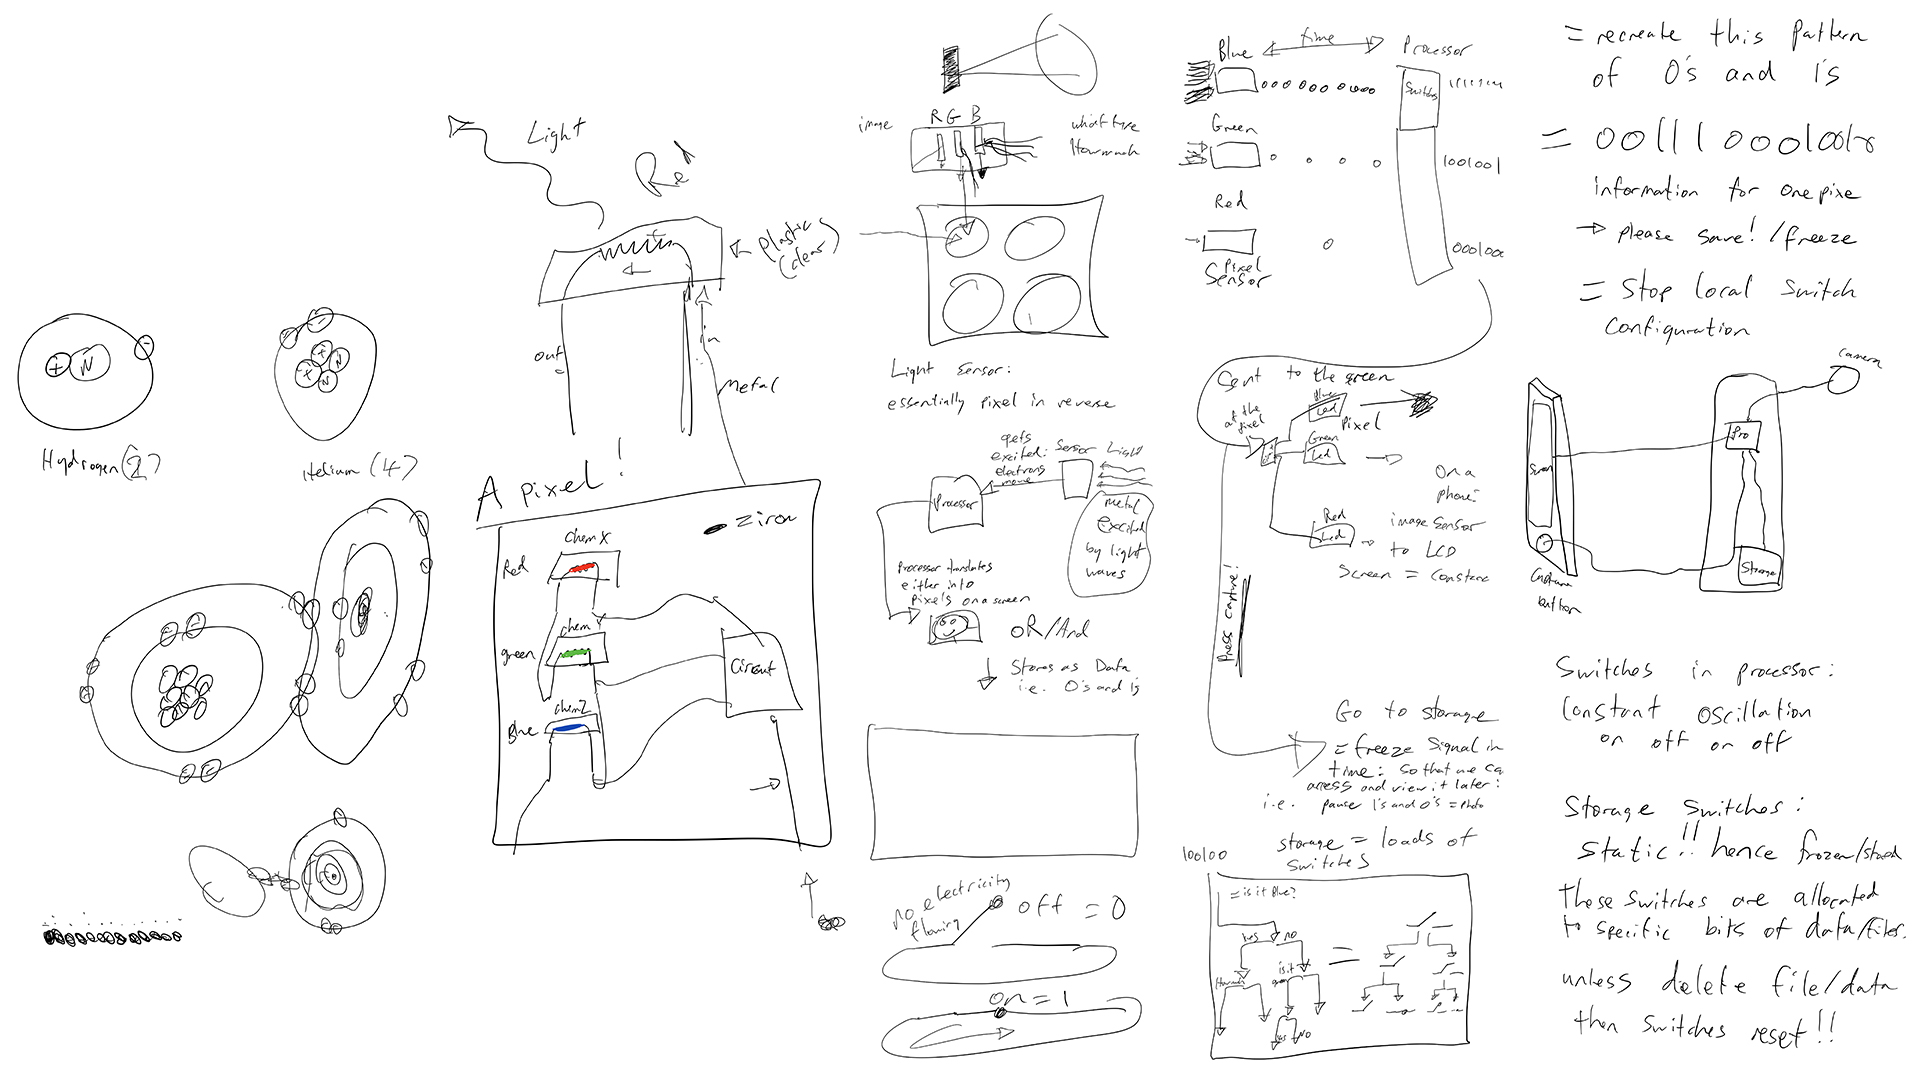 Hydrogen (2)
Helium (4)
Light
Red
plastic
(clear)
out
in
Metal
A pixel!
Red
chem X
green
chem Y
Blue
chem Z
Circuit
image
R G B
what type
How much
Light Sensor:
essentially pixel in reverse
gets
excited:
electrons
move
Sensor
Light
Processor
metal
excited
by light
waves
Processor translates
either into
pixels on a screen
OR/And
Stores as Data
i.e. 0's and 1s
no electricity
flowing
off = 0
on = 1
Blue
time
Processor
Switches
Green
1001001
Red
Pixel
Sensor
Sent to the green
at the
pixel
Blue
Led
Pixel
Green
Led
Red
Led
On a
phone:
image sensor
to LCD
Screen = constant
Press capture!
Go to storage
= freeze signal in
time: so that we ca
access and view it later:
i.e. pause 1's and 0's = photo
storage = loads of
switches
100100
= is it Blue?
yes
no
is it
yes
no
=
= recreate this pattern
of 0's and 1's
information for one pixe
→ please save! /freeze
= Stop local switch
configuration
Camera
Screen
Pro
Storage
Capture
button
Switches in processor:
Constant oscillation
on off on off
Storage Switches:
Static!! hence frozen/stored
these switches are allocated
to specific bits of data/files.
unless delete file/data
then switches reset!!